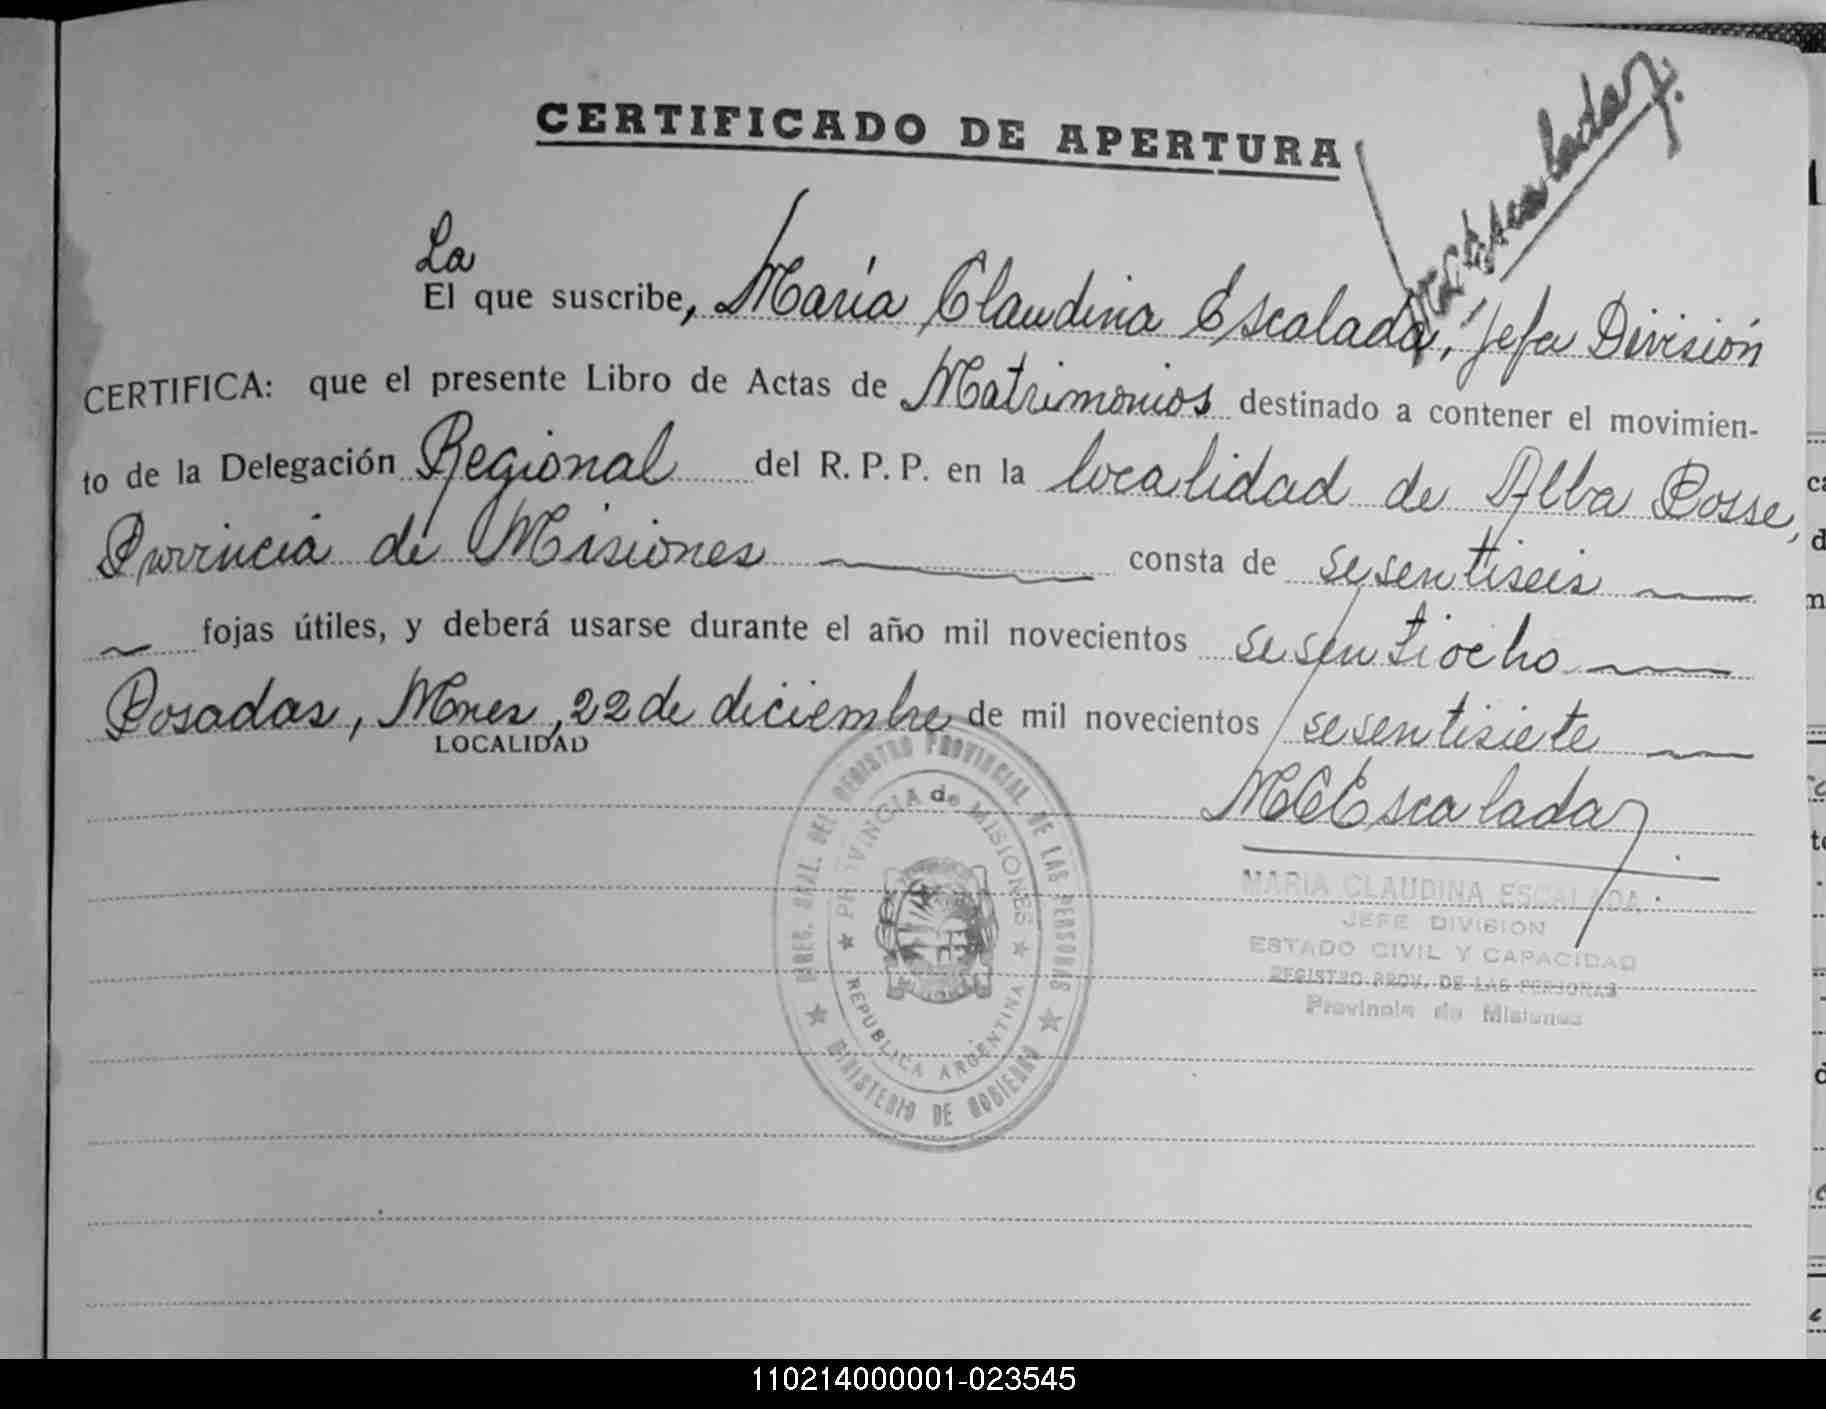 CERTIFICADO DE APERTURA
MCEscalada
La
El que suscribe, María Claudina Escalada, Jefa División
CERTIFICA: que el presente Libro de Actas de Matrimonios destinado a contener el movimien-
to de la Delegación Regional del R. P. P. en la localidad de Alba Posse,
Provincia de Misiones consta de sesentiseis
fojas útiles, y deberá usarse durante el año mil novecientos sesentiocho
Posadas, Mnes, 22 de diciembre de mil novecientos sesentisiete
LOCALIDAD
MCEscalada
DIREC. GRAL. DEL REGISTRO PROVINCIAL DE LAS PERSONAS
PROVINCIA de MISIONES
REPUBLICA ARGENTINA
MINISTERIO DE GOBIERNO
MARIA CLAUDINA ESCALADA
JEFE DIVISION
ESTADO CIVIL Y CAPACIDAD
REGISTRO PROV. DE LAS PERSONAS
Provincia de Misiones
110214000001-023545